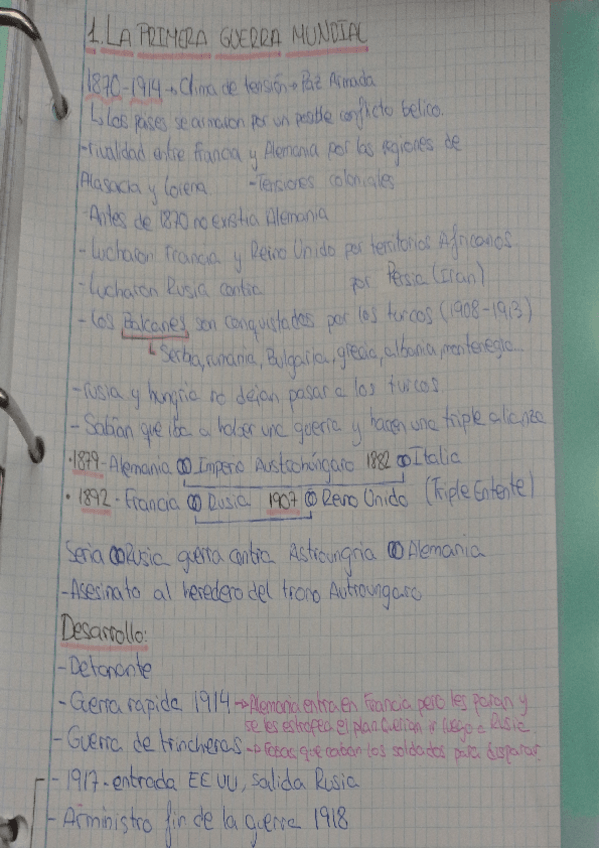 1. LA PRIMERA GUERRA MUNDIAL
1870-1914 → Clima de tensión → Paz Armada
↳ Los países se armaron por un posible conflicto bélico.
-rivalidad entre Francia y Alemania por las regiones de
Alasacia y Lorena -Tensiones coloniales
-Antes de 1870 no existia Alemania
-Lucharon Francia y Reino Unido por territorios Africanos
-Lucharon Rusia contra por Persia (Iran)
-Los Balcanes son conquistados por los turcos (1908-1913)
↳ Serbia, rumania, Bulgaria, grecia, albania, montenegro
-rusia y hungria no dejan pasar a los turcos
-Sabian que iba a haber una guerra y hacen una triple alianza
·1879-Alemania Imperio Austrohúngaro 1882 Italia
·1892-Francia Rusia 1907 Reino Unido (Triple Entente)
Rusia guerra contra Astroungria Alemania
-Asesinato al heredero del trono Autroungaro
Desarrollo:
-Detonante
-Guerra rapida 1914 → Alemania entra en Francia pero les paran y
se les estropea el plan querian ir luego a Rusia
-Guerra de trincheras → que caban los soldados para disparar
-1917-entrada EEUU, salida Rusia
-Arministro fin de la guerra 1918